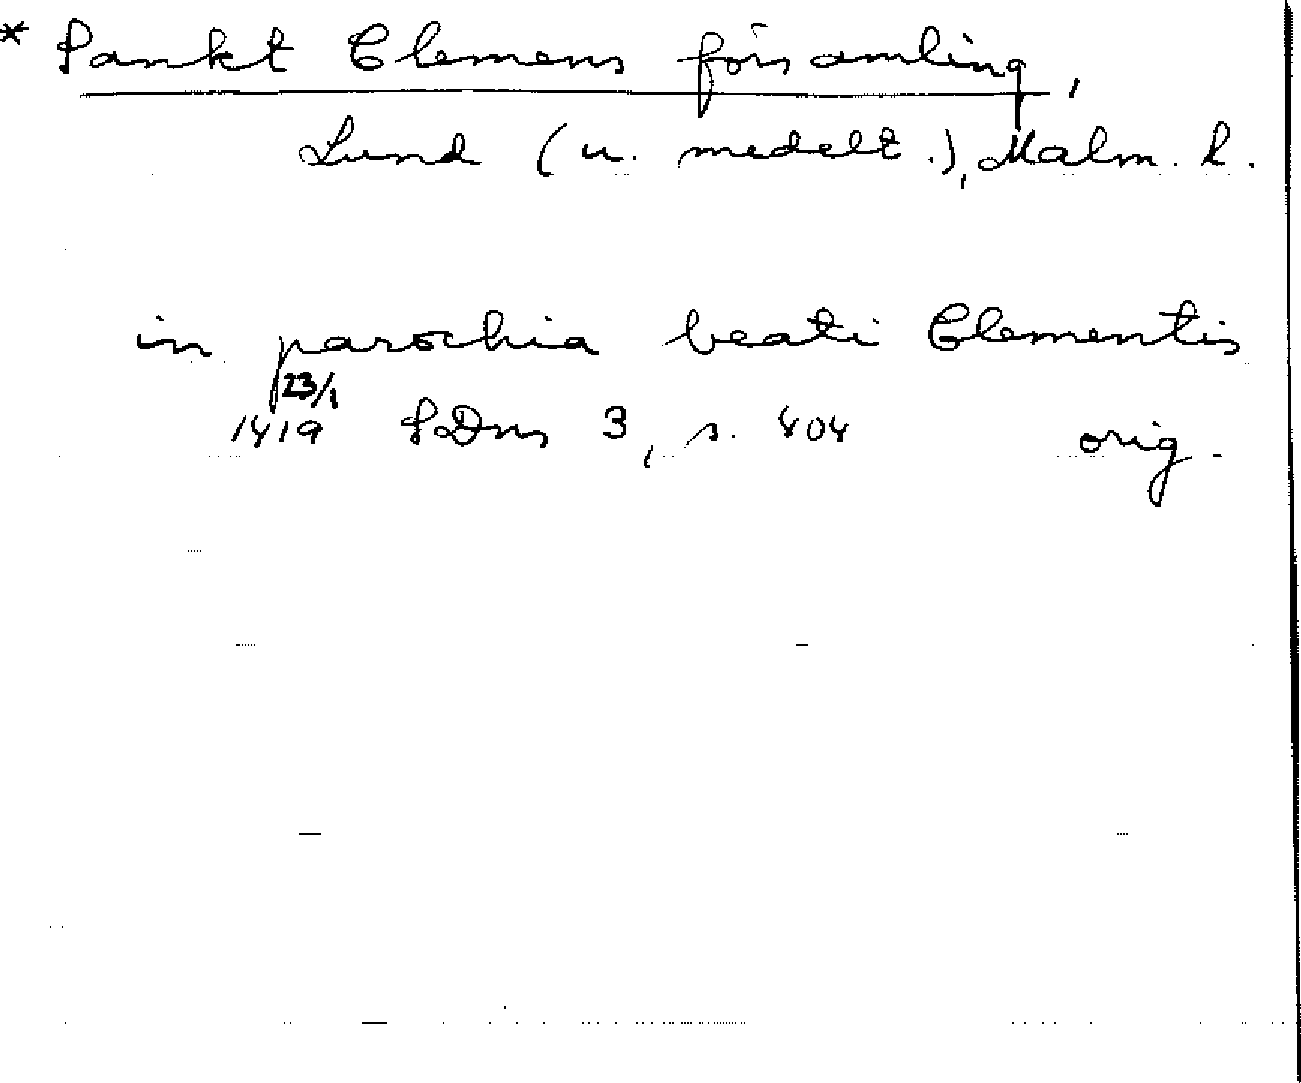 * Sankt Clemens församling,
Lund (u. medelt.), Malm. l.
in parochia beati Clementis
23/1
1419 SDns 3, s. 404 orig.